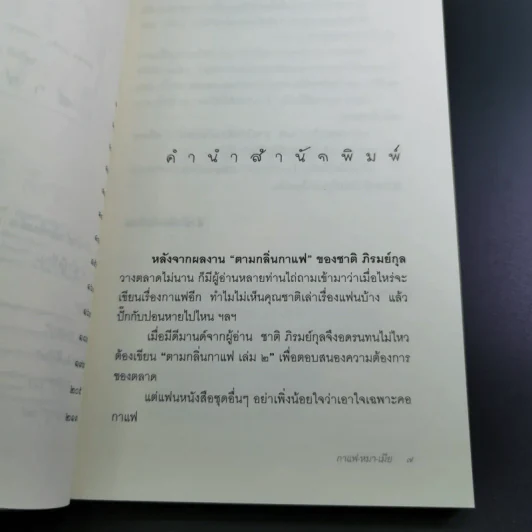 คำนำสำนักพิมพ์
หลังจากผลงาน “ตามกลิ่นกาแฟ” ของชาติ ภิรมย์กุล
วางตลาดไม่นาน ก็มีผู้อ่านหลายท่านไถ่ถามเข้ามาว่าเมื่อไหร่จะ
เขียนเรื่องกาแฟอีก ทำไมไม่เห็นคุณชาติเล่าเรื่องแฟนบ้าง แล้ว
ปั๊กกับปอนหายไปไหน ฯลฯ
เมื่อมีดีมานด์จากผู้อ่าน ชาติ ภิรมย์กุลจึงอดรนทนไม่ไหว
ต้องเขียน “ตามกลิ่นกาแฟ เล่ม ๒” เพื่อตอบสนองความต้องการ
ของตลาด
แต่แฟนหนังสือชุดอื่นๆ อย่าเพิ่งน้อยใจว่าเอาใจเฉพาะคอ
กาแฟ
กาแฟ-หมา-เมีย ๗